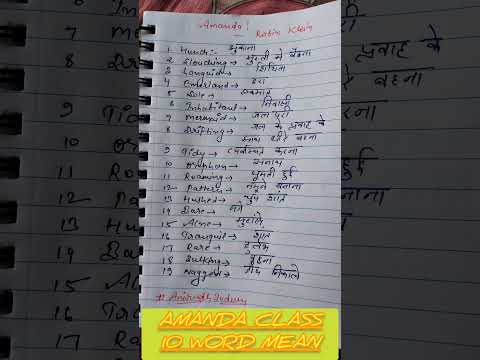 Amanda!
Robin Klein
1 Hunch:- झुकाना
2 Slouching→ सुस्ती से बैठना
3 Languid→ शिथिल
4 Emerland→ हरा
5 Sole→ एकमात्र
6 Inhabitant→ निवासी
7 mermaid→ जल परी
8 Drifting→ जल के प्रवाह के साथ धीरे बहना
9 Tidy→ व्यवस्थित करना
10 Orphan→ अनाथ
11 Roaming→ घूमती हुई
12 Pattern→ नमूने बनाना
13 Hushed→ चुप शांत
14 Bare→ नंगे
15 Acne→ मुहासे
16 Tranquil→ शांत
17 Rare→ दुर्लभ
18 Sulking→
19 Nagged→
AMANDA CLASS
10 WORD MEAN